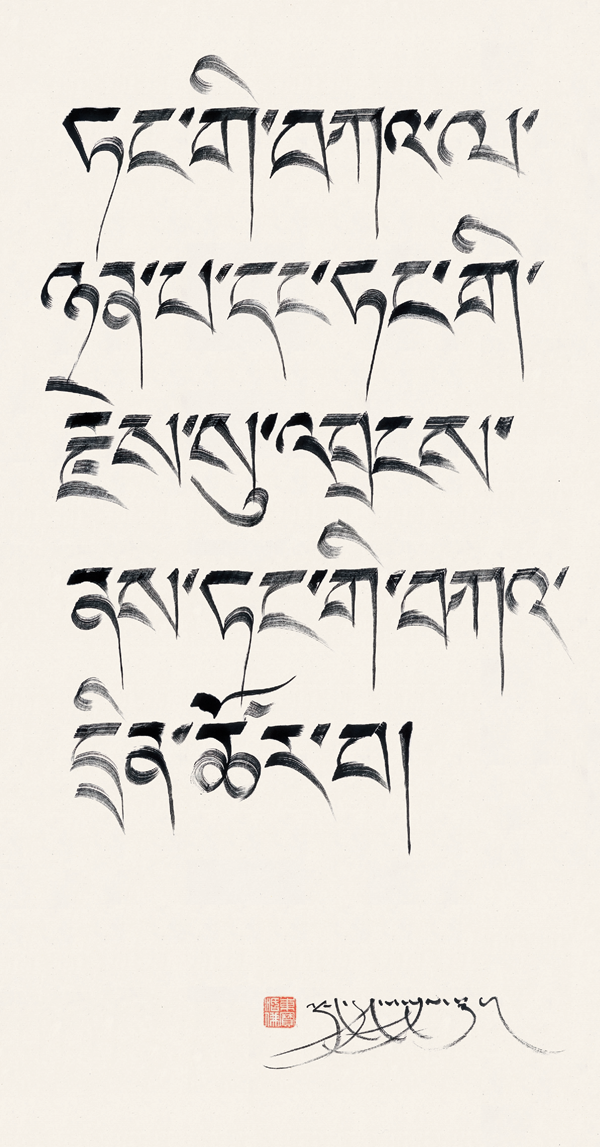 ཏང་གི་བཀའ་ལ་
ཉན་པ་དང་ཏང་གི་
རྗེས་སུ་འབྲངས་
ནས་ཏང་གི་བཀའ་
དྲིན་ཚོར་བ།